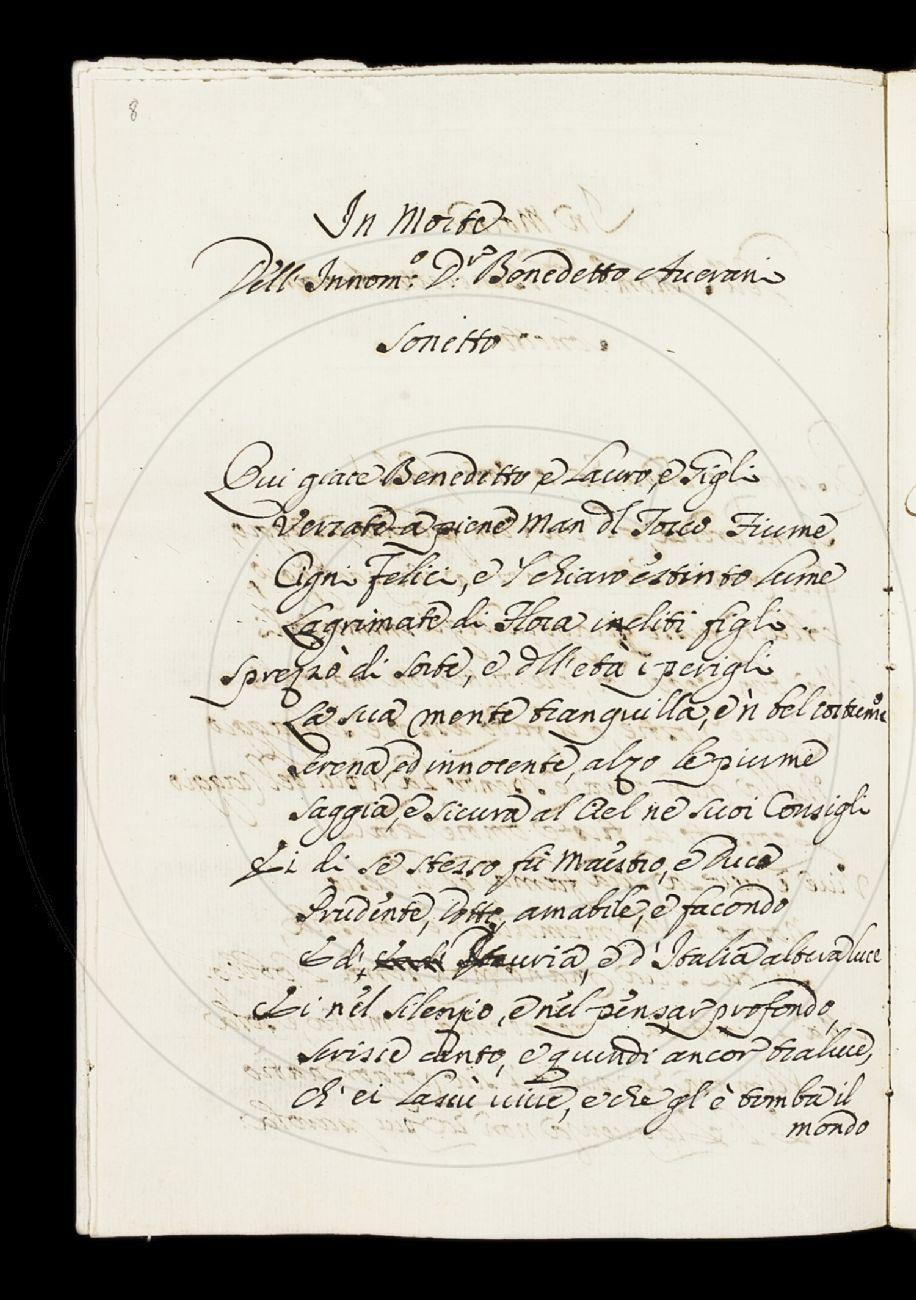 8
In Morte
Dell' Innom:º D:ʳᵉ Benedetto Averani
Sonetto
Qui giace Beneditto, e Lauro, e Gigli
Versate a piene Man dl Tosco Fiume,
Cigni Felici, e 'l chiaro estinto lume
Lagrimate di Flora incliti figli.
Sprezzò di sorte, e dll' età i perigli
La sua mente tranquilla, e 'n bel costume
Serena, ed innocente, alzo le piume
Saggia, e sicura al Ciel ne suoi Consigli
Ei di se stesso fù Maestro, e Duce
Prudente, Dotto, amabile, e facondo
E d' Etruria, e d' Italia altera luce
Ei nel silenzio, e nel pensar profondo,
Scrisse canto, e quindi ancor traluce,
Ch' ei lasù vive, e che gl' è tomba il
mondo